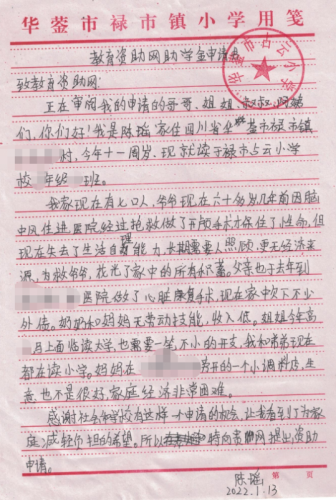 华蓥市禄市镇小学用笺
教育资助网助学金申请书
致教育资助网:
正在审阅我的申请的哥哥、姐姐、叔叔、阿姨
们,你们好!我是陈瑶,家住四川省华蓥市禄市镇
村,今年十一周岁,现就读于禄市占云小学
年级 班。
我家现在有七口人,爷爷现在六十多岁几年前因脑
中风住进医院经过抢救做了开颅手术才保住了性命,但
现在失去了生活自理能力,长期需要人照顾,更无经济来
源,为救爷爷,花光了家中的所有积蓄。父亲也于去年到
医院做了心脏 手术,现在家中欠下不少
外债。奶奶和妈妈无劳动技能,收入低。姐姐今年高
月上面临读大学,也需要一笔不小的开支,我和弟弟现在
都在读小学。妈妈在 开的一个小调料店,生
意也不是很好,家庭经济非常困难。
感谢社会 有这样一个申请的机会,让我看到了为家
庭减轻负担的希望。所以 特向贵网提出资助
申请。
第 页
陈瑶
2022.1.13